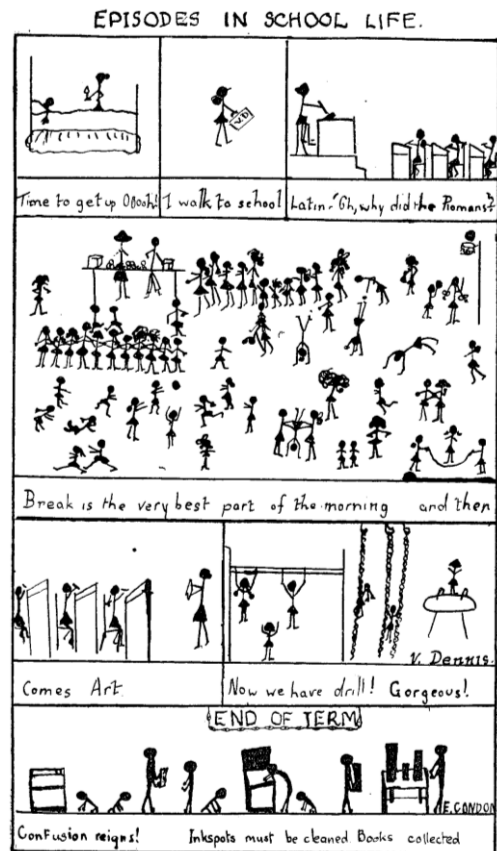 EPISODES IN SCHOOL LIFE.
V.D
Time to get up Oooh!
I walk to school
Latin-"Oh, why did the Romans"?
Break is the very best part of the morning and then
Comes Art.
V. Dennis.
Now we have drill! Gorgeous!
END OF TERM
E. CONDON
Confusion reigns! Inkspots must be cleaned Books collected